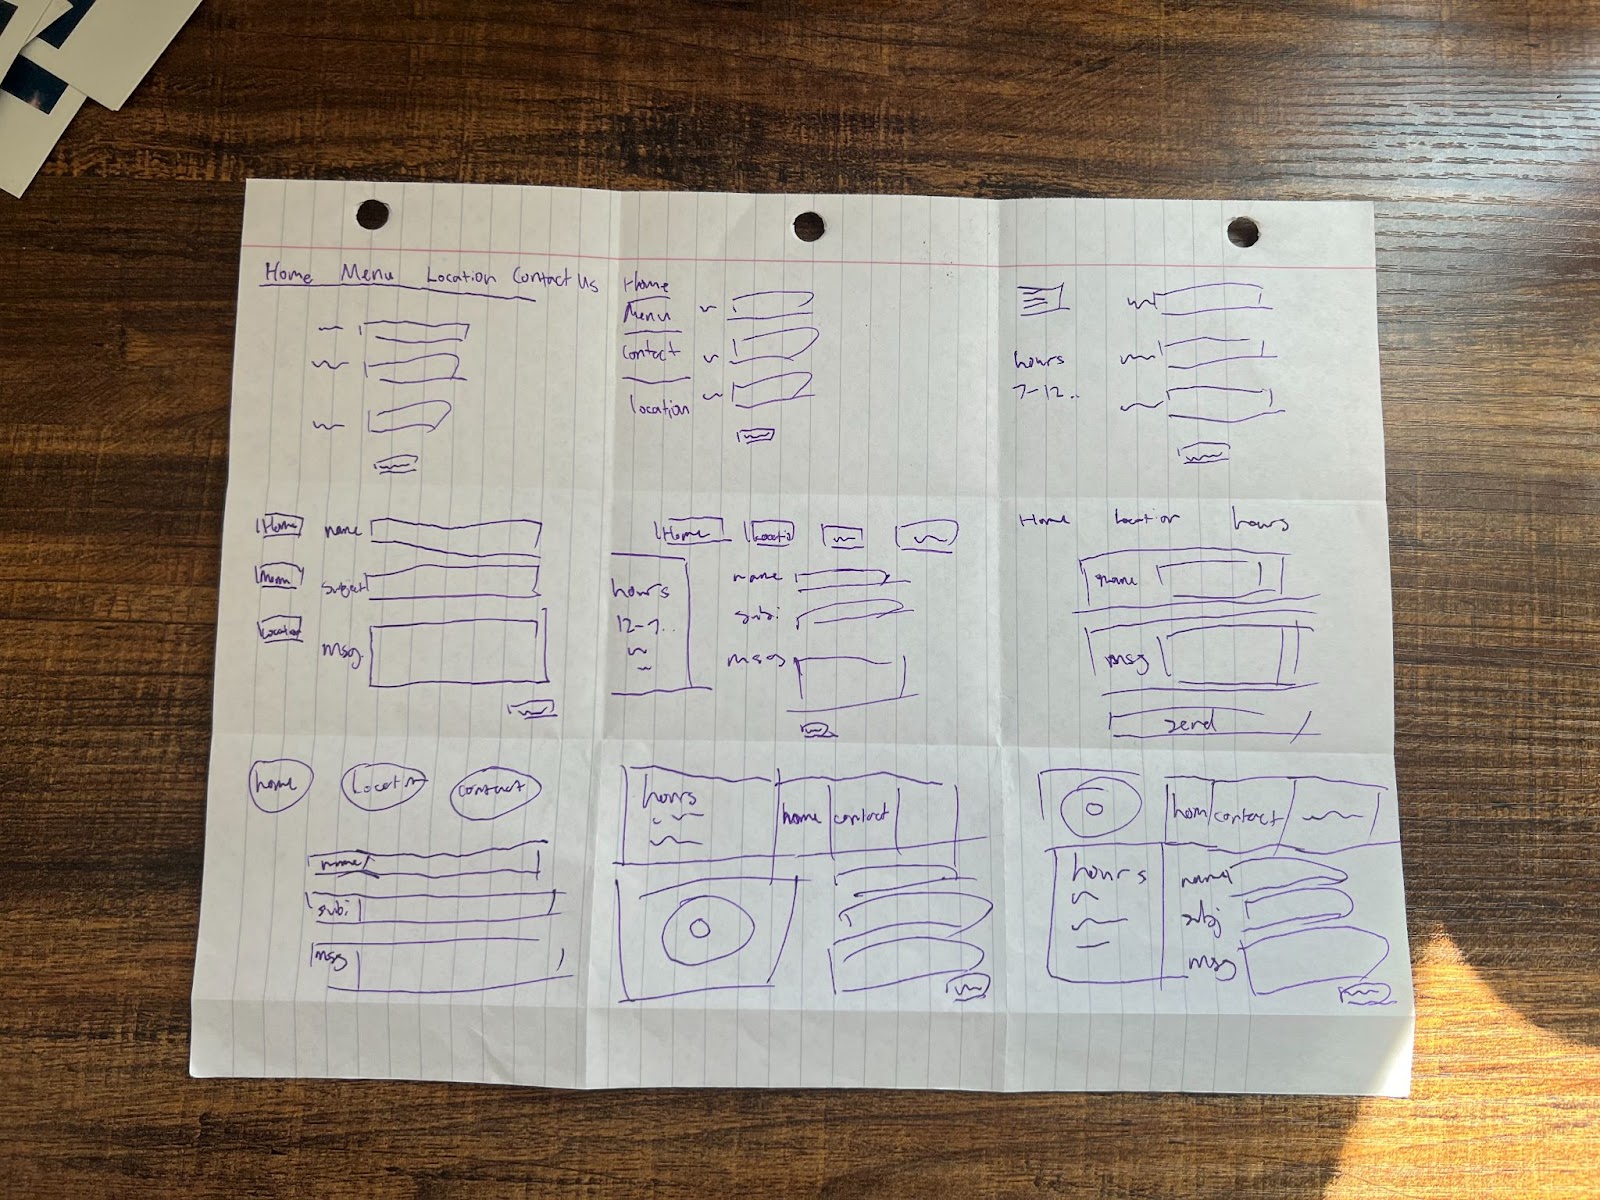 Home Menu Location Contact Us
Home
Menu
Contact
location
hours
7-12..
Home
Menu
Location
name
subject
msg
Home Locatio
hours
12-7..
name
subj
msg
Home Location hours
name
msg
send
home Locatn contact
name
subj
msg
hours
home contact
hom contact
hours
name
subj
msg